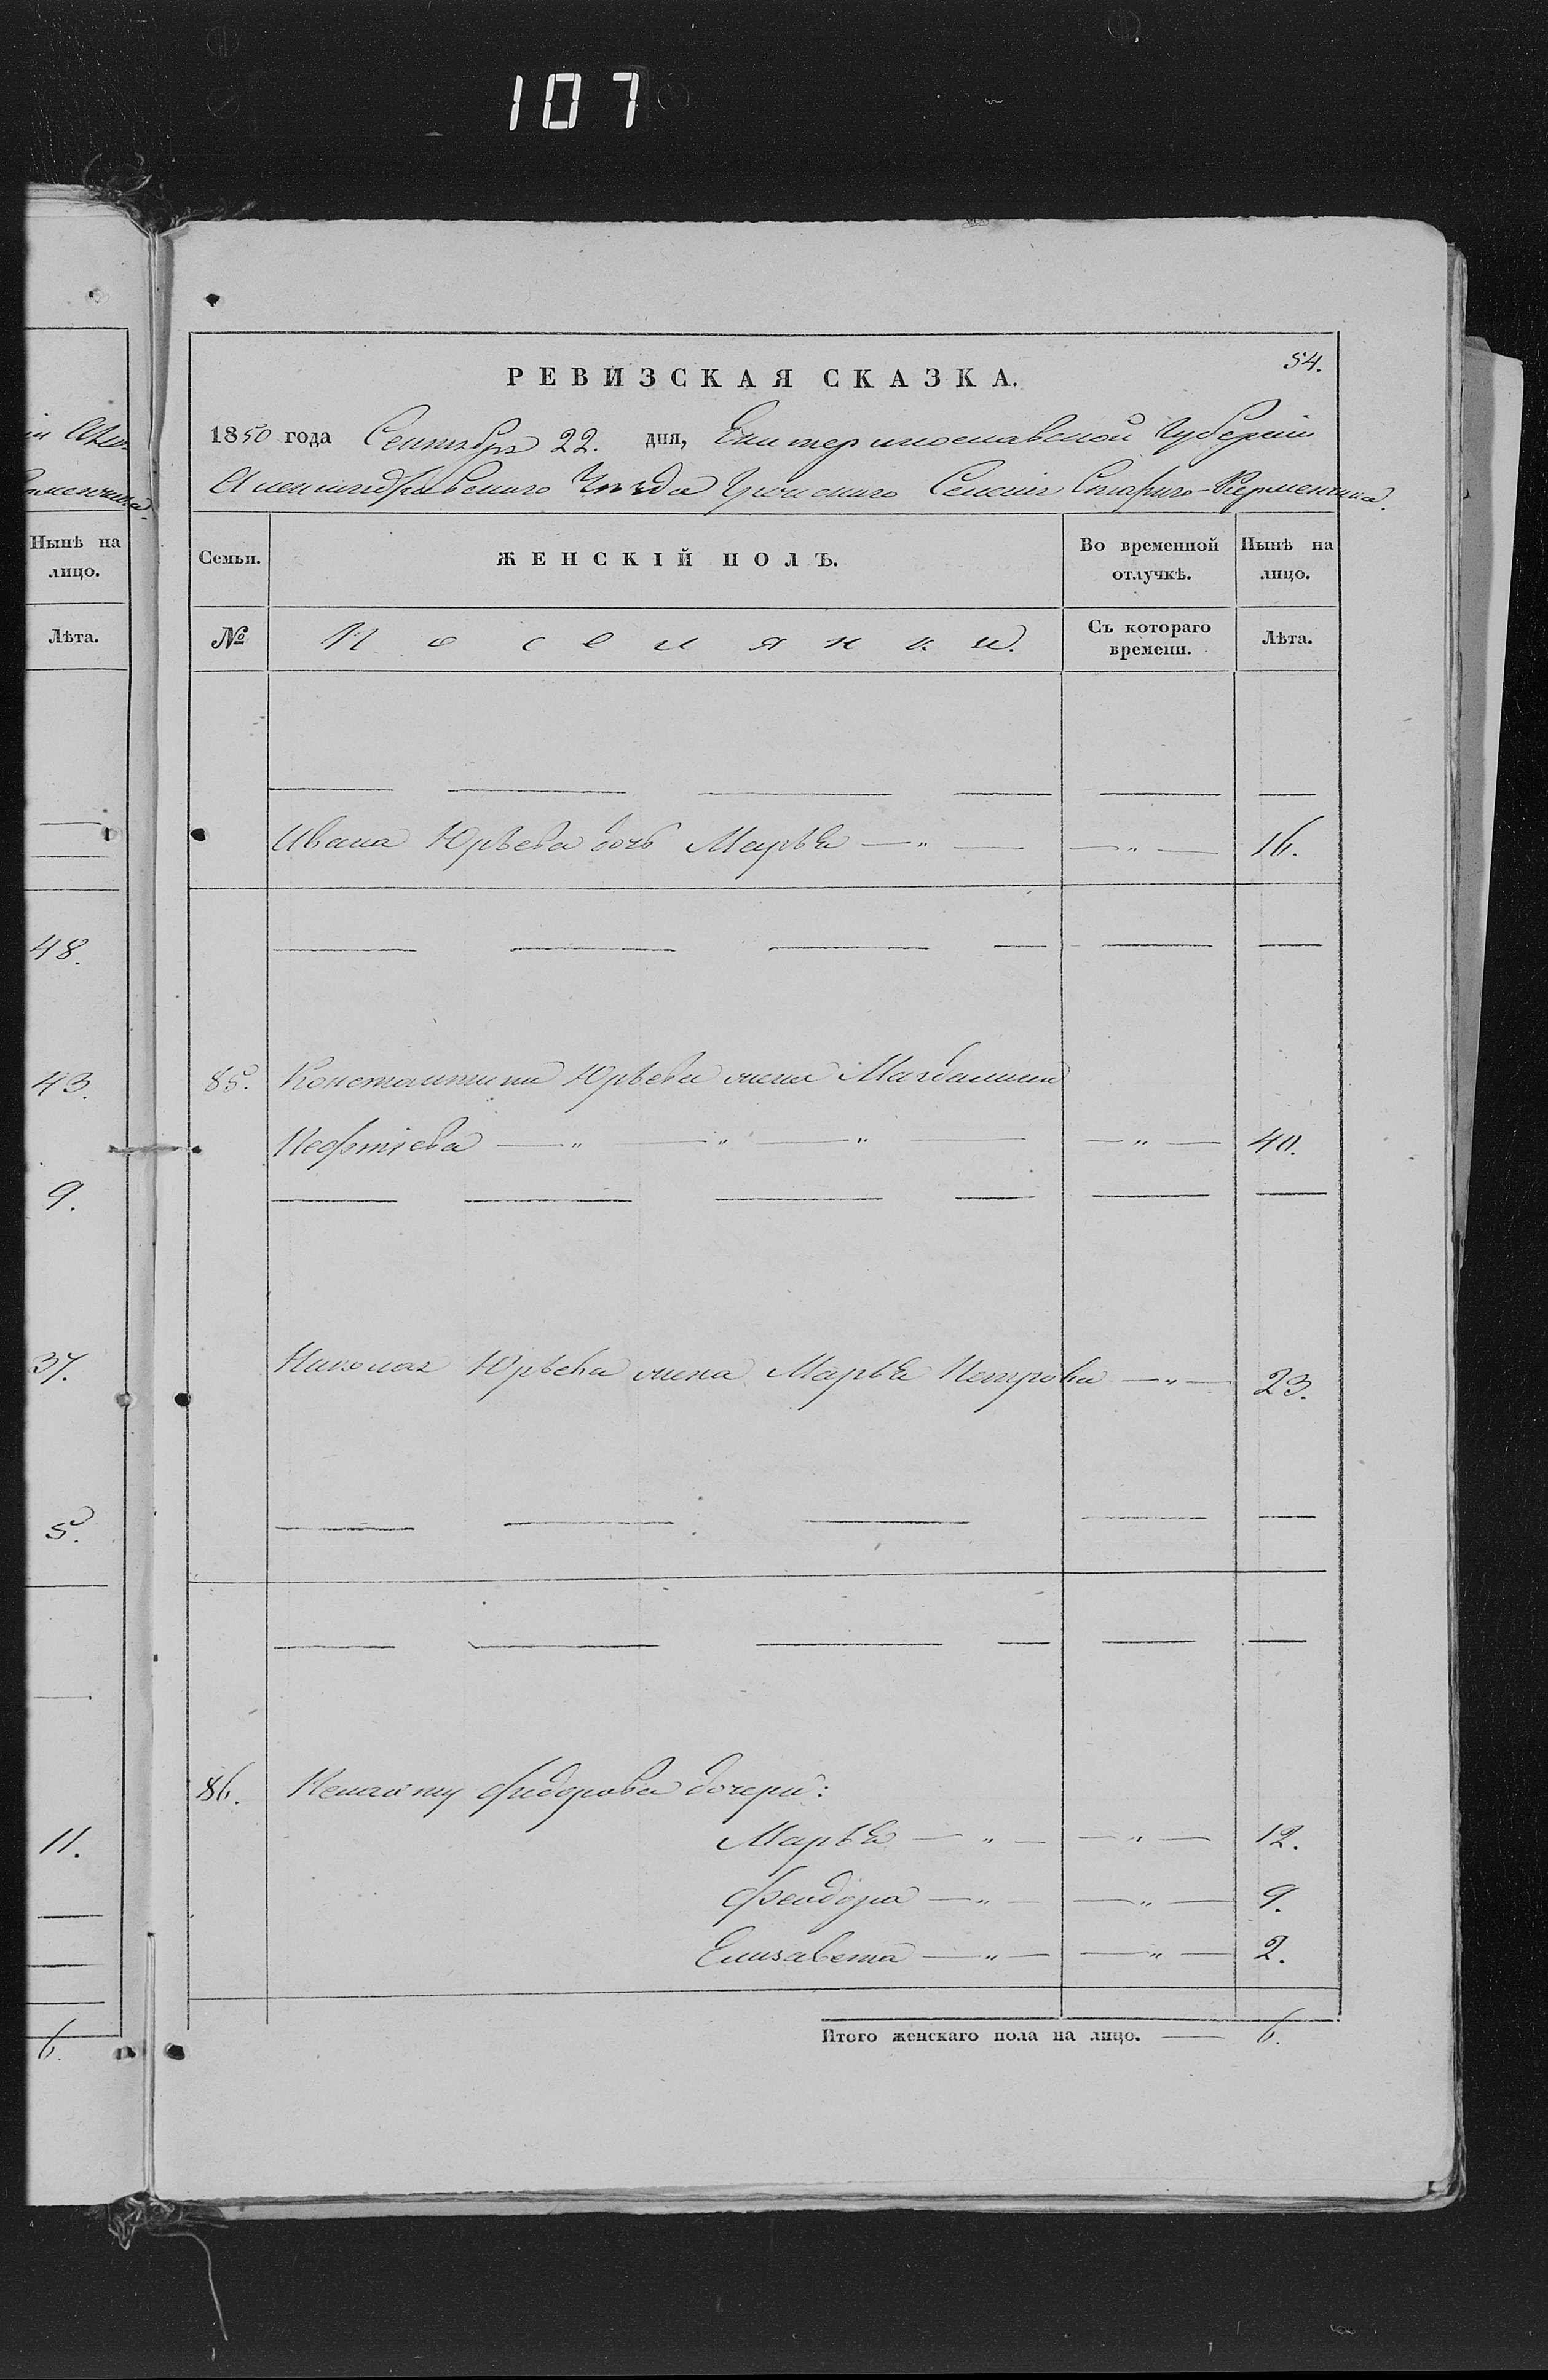 107
54.
РЕВИЗСКАЯ СКАЗКА.
1850 года Сентября 22. дня, Екатеринославской Губернiи
Александровскаго Уѣзда Греческаго Селенiя Стараго-Керменчика.
Нынѣ на лицо.
Лѣта.
Семьи.
ЖЕНСКІЙ ПОЛЪ.
Во временной отлучкѣ.
Нынѣ на лицо.
№
Поселянки.
Съ котораго времени.
Лѣта.
Ивана Юрьева дочь Марья — " — — " — 16.
85. Константина Юрьева жена Магдалина
— " — " — " — — " — 40.
Николая Юрьева жена Марья Петрова — " — 23.
86. Федорова дочери:
Марья — " — — " — 12.
Феодора — " — — " — 9.
Елизавета — " — — " — 2.
Итого женскаго пола на лицо. — 6.
48.
43.
9.
37.
5.
11.
6.